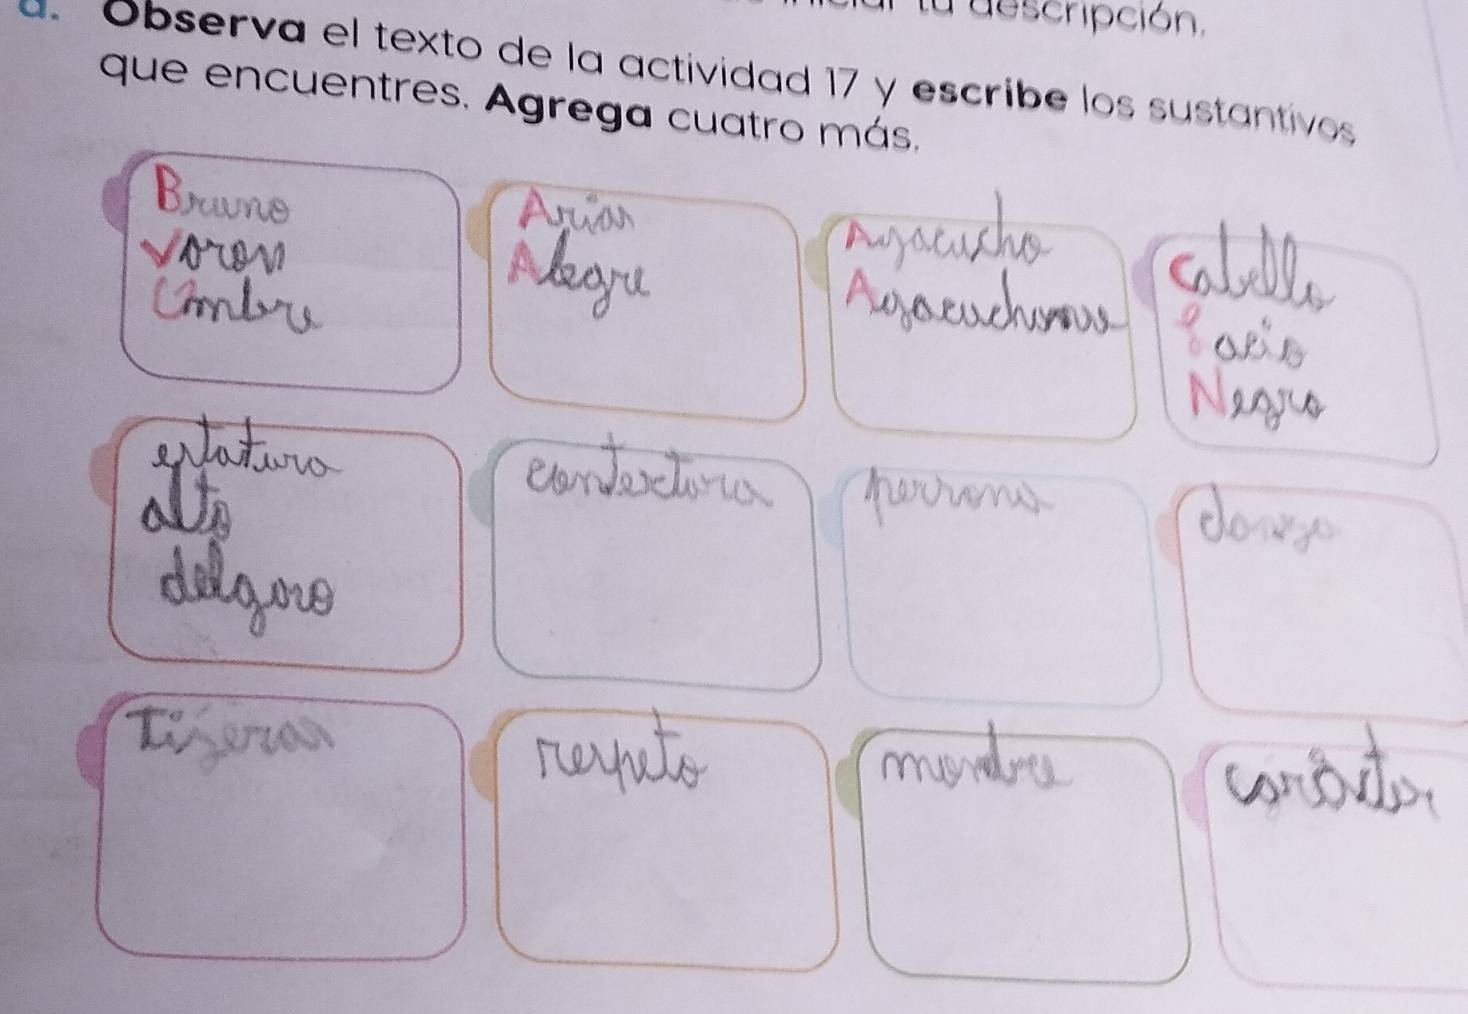 tu descripción.
a. Observa el texto de la actividad 17 y escribe los sustantivos
que encuentres. Agrega cuatro más.
Bruno
Varon
Arian
Alegre
Ayacucho
Ayacuchano
Cabello
Lacio
Negro
estatura
alto
contextura
persona
Tijeras
respeto
carácter